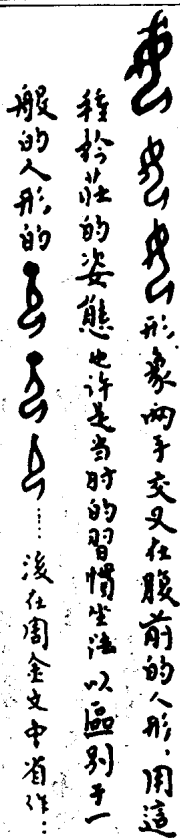 形象两手交叉在腹前的人形，用這
種矜莊的姿態也许是当时的習慣坐法以區别于一
般的人形的……後在周金文中省作：